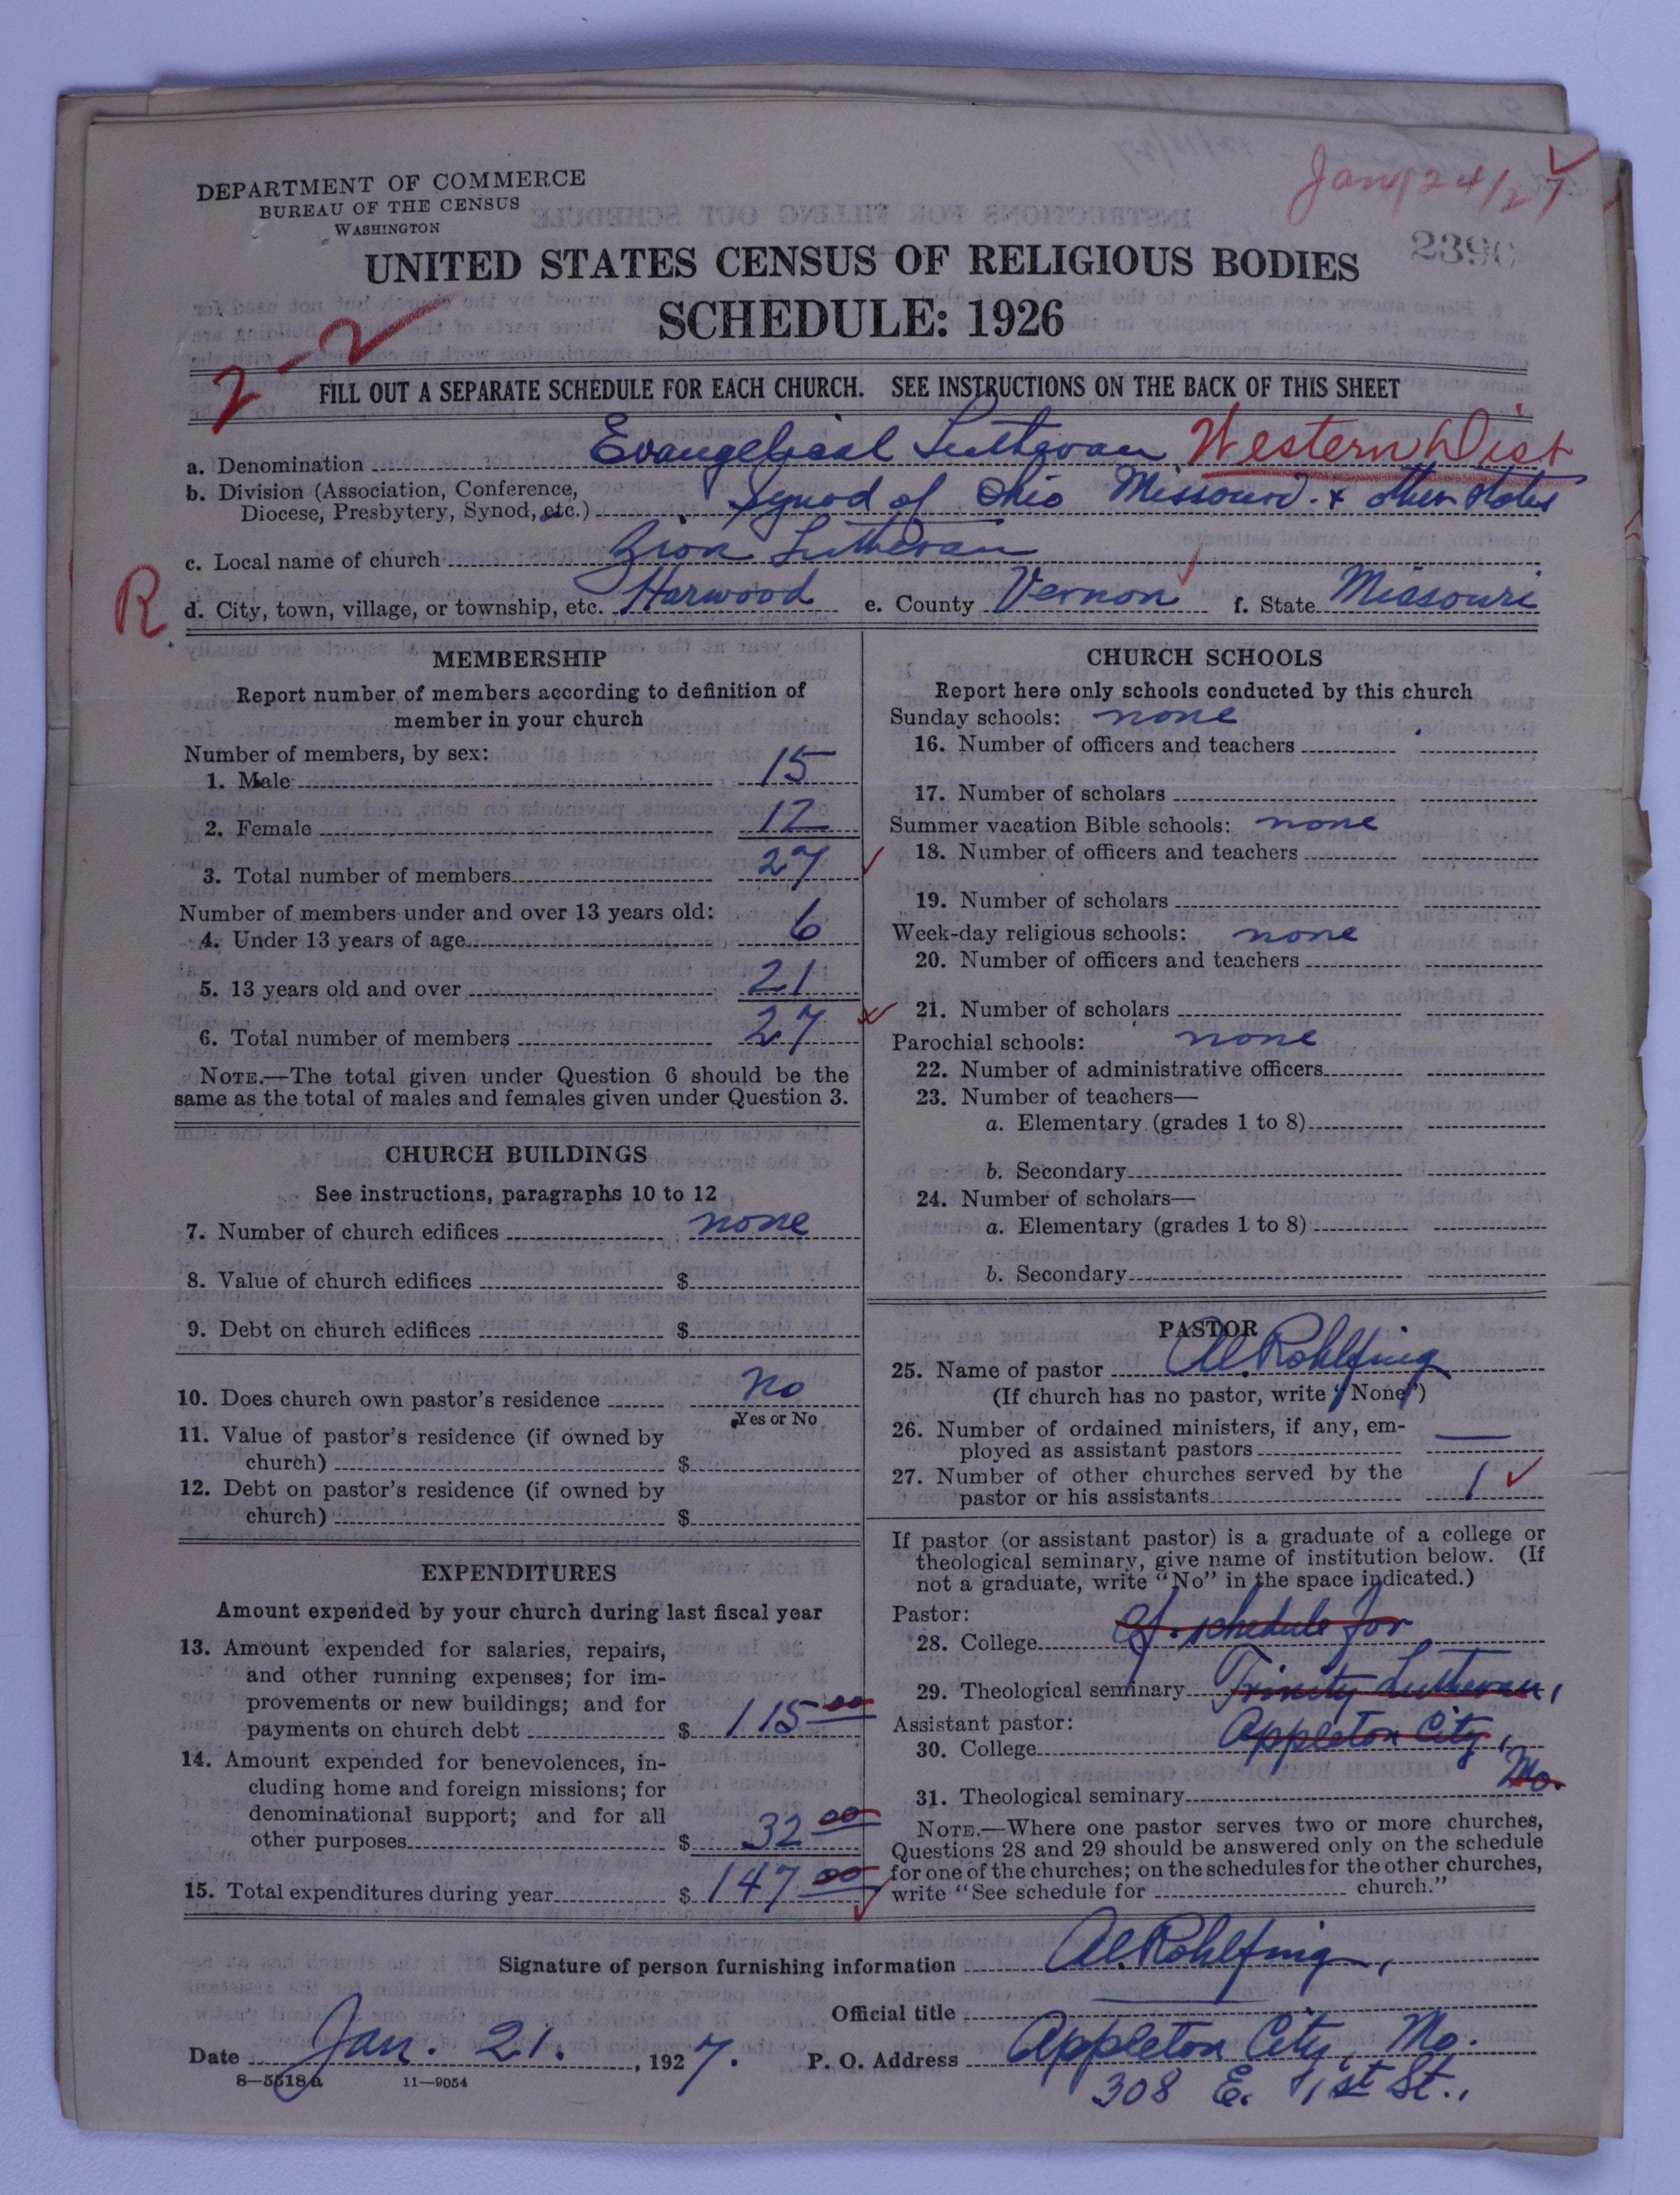 Jan 24/27
DEPARTMENT OF COMMERCE
BUREAU OF THE CENSUS
WASHINGTON
2390
UNITED STATES CENSUS OF RELIGIOUS BODIES
SCHEDULE: 1926
2-2
FILL OUT A SEPARATE SCHEDULE FOR EACH CHURCH. SEE INSTRUCTIONS ON THE BACK OF THIS SHEET
a. Denomination Evangelical Lutheran Western Dist
b. Division (Association, Conference,
Diocese, Presbytery, Synod, etc.) Synod of Ohio Missouri & other States
c. Local name of church Zion Lutheran
R d. City, town, village, or township, etc. Harwood e. County Vernon f. State Missouri
MEMBERSHIP
Report number of members according to definition of
member in your church
Number of members, by sex:
1. Male 15
2. Female 12
3. Total number of members 27
Number of members under and over 13 years old:
4. Under 13 years of age 6
5. 13 years old and over 21
6. Total number of members 27
NOTE.—The total given under Question 6 should be the
same as the total of males and females given under Question 3.
CHURCH BUILDINGS
See instructions, paragraphs 10 to 12
7. Number of church edifices none
8. Value of church edifices $
9. Debt on church edifices $
10. Does church own pastor's residence No
Yes or No
11. Value of pastor's residence (if owned by
church) $
12. Debt on pastor's residence (if owned by
church) $
EXPENDITURES
Amount expended by your church during last fiscal year
13. Amount expended for salaries, repairs,
and other running expenses; for im-
provements or new buildings; and for
payments on church debt $ 115 00
14. Amount expended for benevolences, in-
cluding home and foreign missions; for
denominational support; and for all
other purposes $ 32 00
15. Total expenditures during year $ 147 00
CHURCH SCHOOLS
Report here only schools conducted by this church
Sunday schools: none
16. Number of officers and teachers
17. Number of scholars
Summer vacation Bible schools: none
18. Number of officers and teachers
19. Number of scholars
Week-day religious schools: none
20. Number of officers and teachers
21. Number of scholars
Parochial schools: none
22. Number of administrative officers
23. Number of teachers—
a. Elementary (grades 1 to 8)
b. Secondary
24. Number of scholars—
a. Elementary (grades 1 to 8)
b. Secondary
PASTOR
25. Name of pastor Al. Rohlfing
(If church has no pastor, write "None")
26. Number of ordained ministers, if any, em-
ployed as assistant pastors —
27. Number of other churches served by the
pastor or his assistants 1
If pastor (or assistant pastor) is a graduate of a college or
theological seminary, give name of institution below. (If
not a graduate, write "No" in the space indicated.)
Pastor:
28. College cf. schedule for
29. Theological seminary Trinity Lutheran,
Assistant pastor:
30. College Appleton City,
Mo.
31. Theological seminary
NOTE.—Where one pastor serves two or more churches,
Questions 28 and 29 should be answered only on the schedule
for one of the churches; on the schedules for the other churches,
write "See schedule for church."
Signature of person furnishing information Al. Rohlfing,
Official title
Date Jan. 21. , 1927. P. O. Address Appleton City, Mo.
8—5518a 11—9054
308 E. 1st St.,